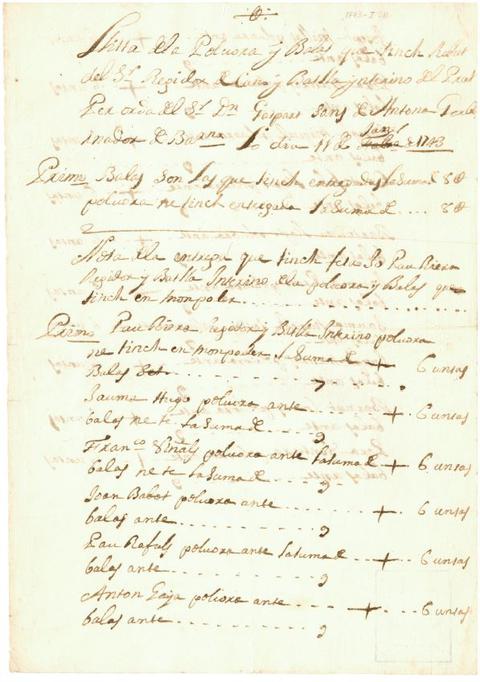 Llista de la Polvora y Bales que tinch Rebut
del Sr. Regidor de Cañ y Batlla ynterino del Prat
Per orda del Sr. Dn. Gaspart Sans de Antona
nador de Barna. lo dia 11 de Janr. 1743
Primo Bales son las que tinch entregades la suma de 8
polvora ne tinch entregada la suma de .... 8
Nota de la entrega que tinch feta Jo Pau Riera
Regidor y Batlla Interino de la polvora y Bales que
tinch en mon poder
Primo Pau Riera Regidor y Batlle Interino polvora
ne tinch en mon poder la suma de + 6 unsas
Balas 9
Jauma Hugo polvora ante + 6 unsas
balas ne te la suma de 9
Franco polvora ante la suma de + 6 unsas
balas ne te la suma de 9
Joan Babot polvora ante + 6 unsas
balas ante 9
Pau Rafuls polvora ante la suma de + 6 unsas
balas ante 9
Anton polvora ante + 6 unsas
balas ante 9